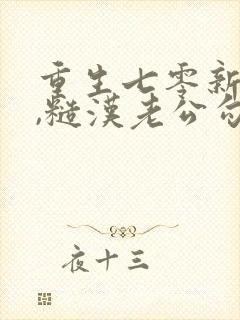 重生七零新
,糙漢老公
夜十三